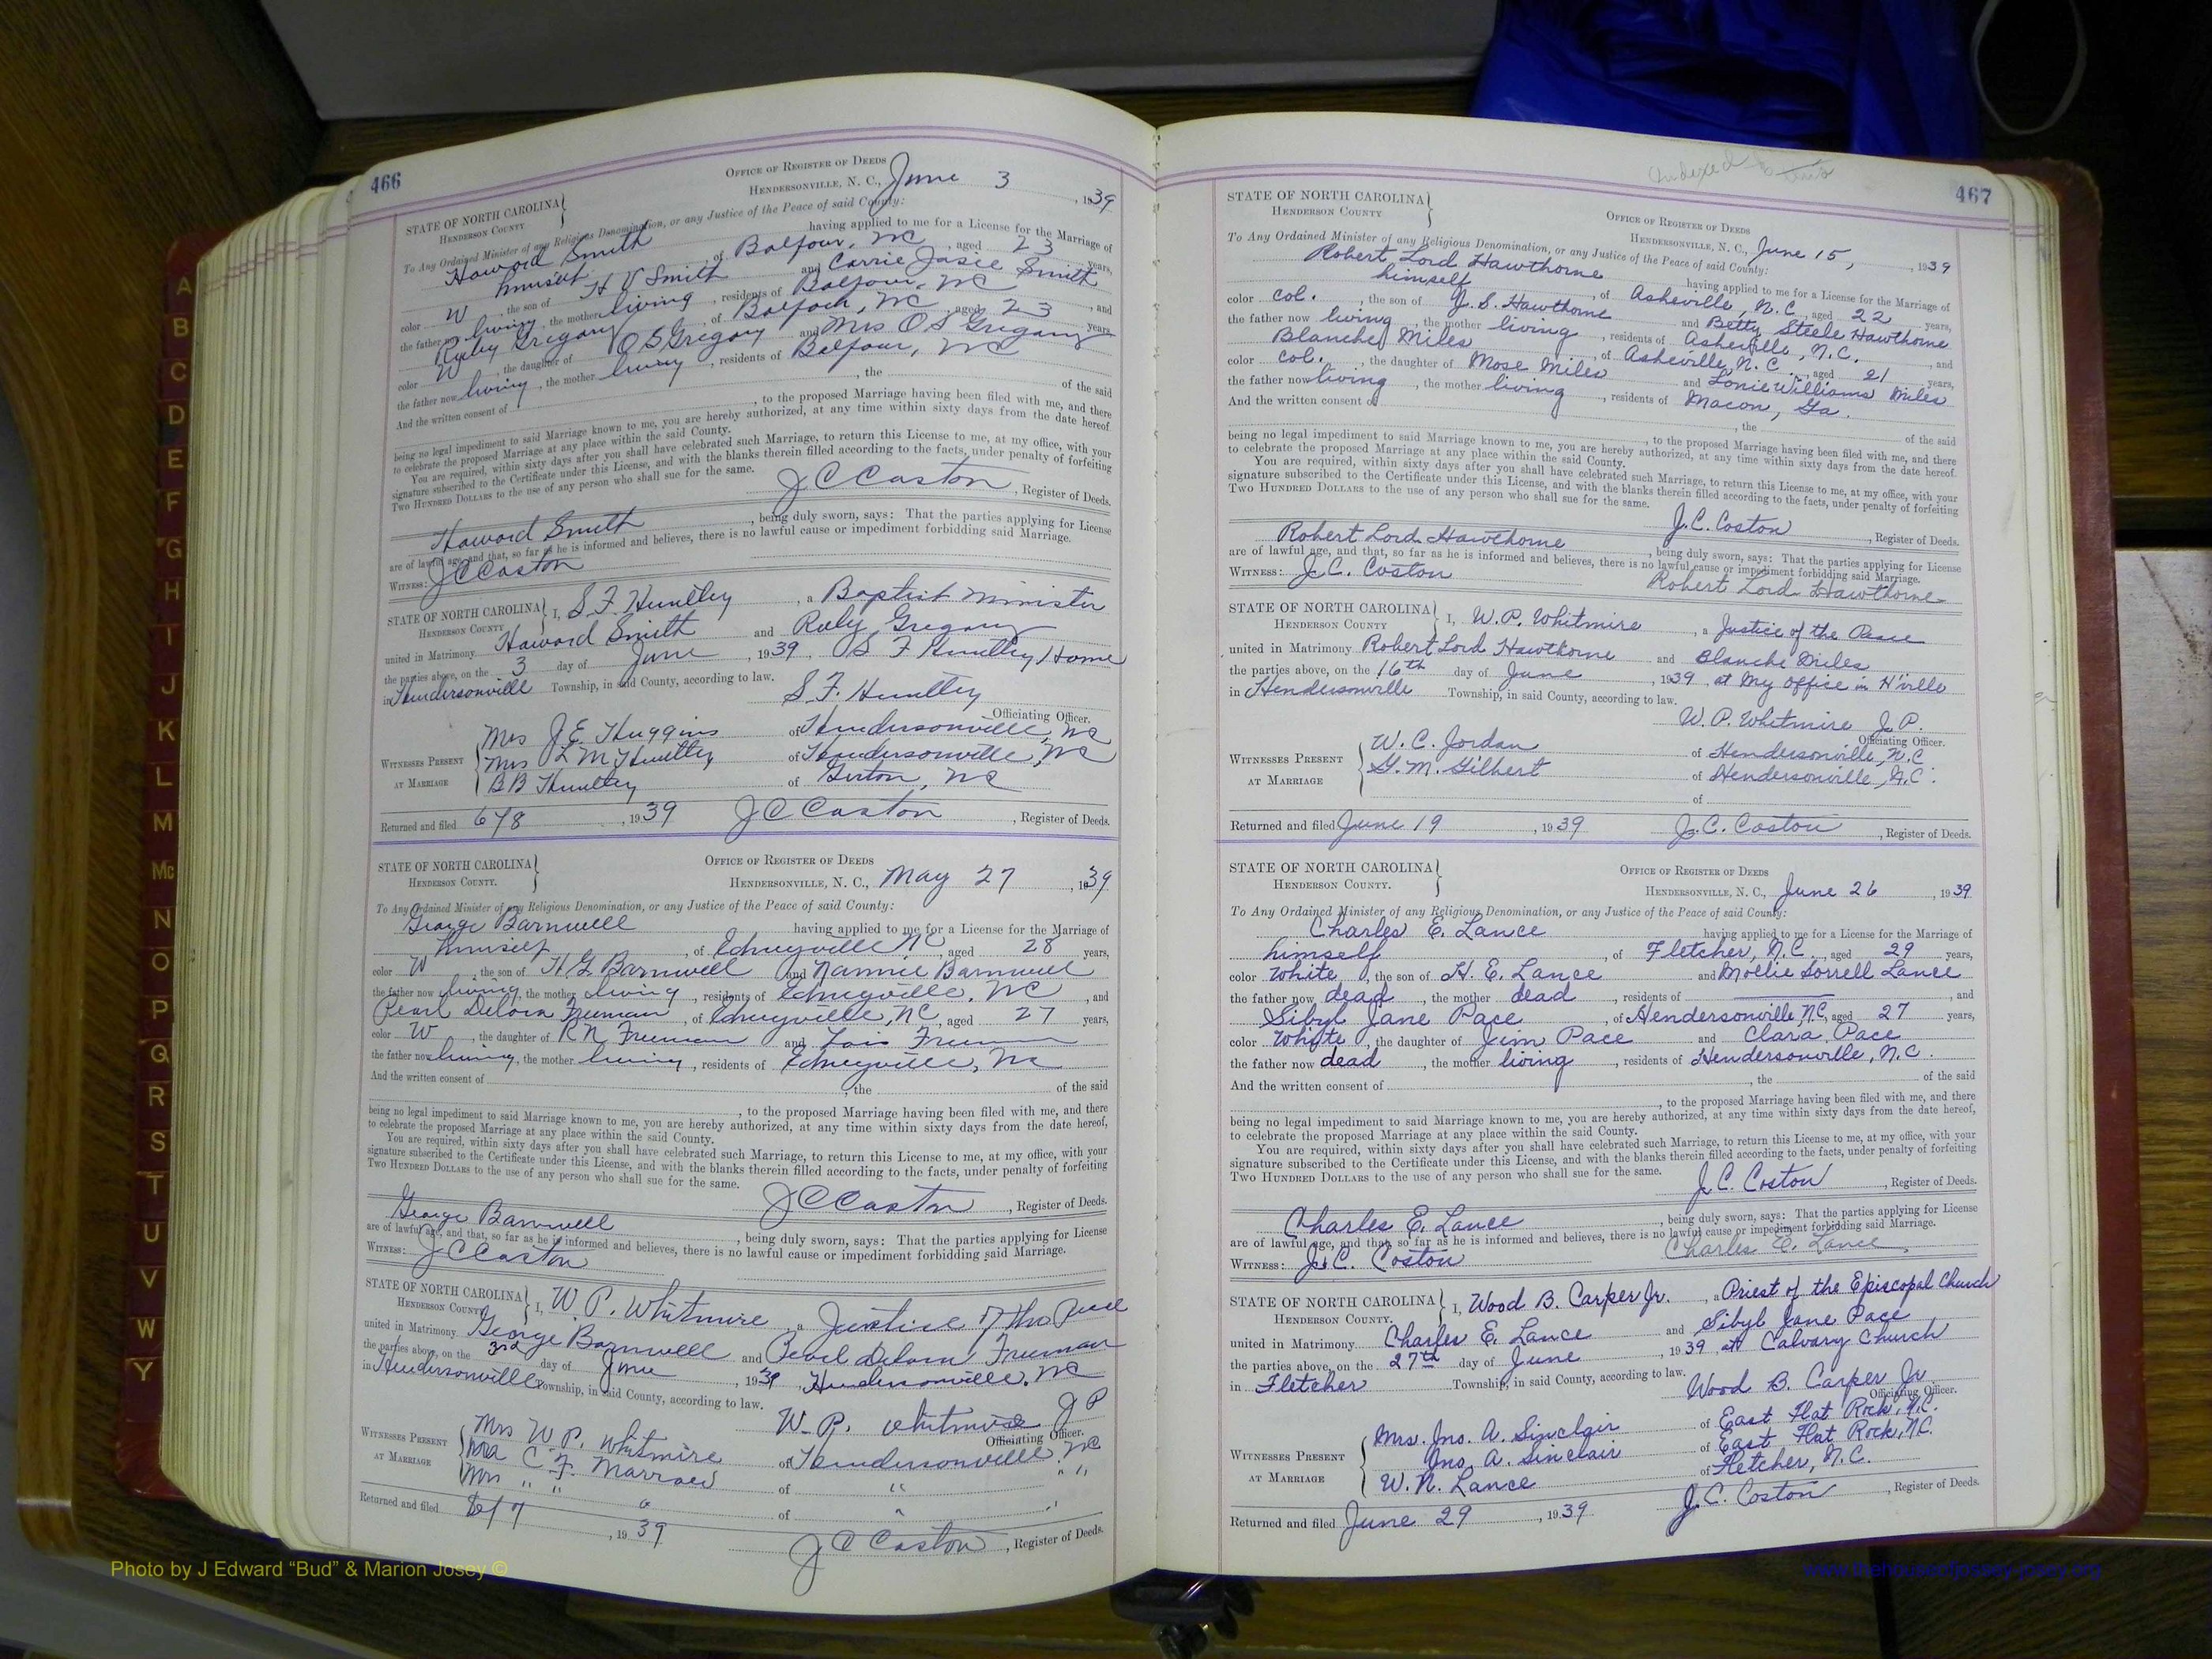 466
OFFICE OF REGISTER OF DEEDS
HENDERSONVILLE, N. C., June 3, 1939
STATE OF NORTH CAROLINA
HENDERSON COUNTY
To Any Ordained Minister of any Religious Denomination, or any Justice of the Peace of said County:
Howard Smith having applied to me for a License for the Marriage of
himself of Balfour, NC, aged 23 years,
color W, the son of H V Smith and Carrie Josie Smith
the father now living, the mother living, residents of Balfour, NC and
Ruby Gregory, of Balfour, NC, aged 23 years,
color W, the daughter of O S Gregory and Mrs O S Gregory
the father now living, the mother living, residents of Balfour, NC
And the written consent of , the of the said
, to the proposed Marriage having been filed with me, and there
being no legal impediment to said Marriage known to me, you are hereby authorized, at any time within sixty days from the date hereof
to celebrate the proposed Marriage at any place within the said County.
You are required, within sixty days after you shall have celebrated such Marriage, to return this License to me, at my office, with your
signature subscribed to the Certificate under this License, and with the blanks therein filled according to the facts, under penalty of forfeiting
TWO HUNDRED DOLLARS to the use of any person who shall sue for the same.
J C Coston, Register of Deeds.
Howard Smith, being duly sworn, says: That the parties applying for License
are of lawful age, and that, so far as he is informed and believes, there is no lawful cause or impediment forbidding said Marriage.
WITNESS: J C Coston
STATE OF NORTH CAROLINA I, S. F. Huntley, a Baptist minister
HENDERSON COUNTY
united in Matrimony Howard Smith and Ruby Gregory
the parties above, on the 3 day of June, 1939, S F Huntley Home
in Hendersonville Township, in said County, according to law.
S. F. Huntley
Officiating Officer.
WITNESSES PRESENT AT MARRIAGE
Mrs J. E. Huggins of Hendersonville, NC
Mrs L M Huntley of Hendersonville, NC
B B Huntley of Gerton, NC
Returned and filed 6/8, 1939 J C Coston, Register of Deeds.
STATE OF NORTH CAROLINA
HENDERSON COUNTY.
OFFICE OF REGISTER OF DEEDS
HENDERSONVILLE, N. C., May 27, 1939
To Any Ordained Minister of any Religious Denomination, or any Justice of the Peace of said County:
George Barnwell having applied to me for a License for the Marriage of
himself, of Edneyville NC, aged 28 years,
color W, the son of H G Barnwell and Nannie Barnwell
the father now living, the mother living, residents of Edneyville, NC, and
Pearl Delora Freeman, of Edneyville, NC, aged 27 years,
color W, the daughter of R N Freeman and Lois Freeman
the father now living, the mother living, residents of Edneyville, NC
And the written consent of , the of the said
, to the proposed Marriage having been filed with me, and there
being no legal impediment to said Marriage known to me, you are hereby authorized, at any time within sixty days from the date hereof,
to celebrate the proposed Marriage at any place within the said County.
You are required, within sixty days after you shall have celebrated such Marriage, to return this License to me, at my office, with your
signature subscribed to the Certificate under this License, and with the blanks therein filled according to the facts, under penalty of forfeiting
TWO HUNDRED DOLLARS to the use of any person who shall sue for the same.
J C Coston, Register of Deeds.
George Barnwell, being duly sworn, says: That the parties applying for License
are of lawful age, and that, so far as he is informed and believes, there is no lawful cause or impediment forbidding said Marriage.
WITNESS: J C Coston
STATE OF NORTH CAROLINA I, W. P. Whitmire, a Justice of the Peace
HENDERSON COUNTY
united in Matrimony George Barnwell and Pearl Delora Freeman
the parties above, on the 3rd day of June, 1939, Hendersonville, NC
in Hendersonville Township, in said County, according to law.
W. P. Whitmire J P
Officiating Officer.
WITNESSES PRESENT AT MARRIAGE
Mrs W P. Whitmire of Hendersonville, NC
C. F. of " " "
Mrs " " " of "
Returned and filed , 1939 J C Coston, Register of Deeds.
Indexed
467
STATE OF NORTH CAROLINA
HENDERSON COUNTY
OFFICE OF REGISTER OF DEEDS
HENDERSONVILLE, N. C., June 15, 1939
To Any Ordained Minister of any Religious Denomination, or any Justice of the Peace of said County:
Robert Lord Hawthorne having applied to me for a License for the Marriage of
himself, of Asheville, N.C., aged 22 years,
color col., the son of J. S. Hawthorne and Betty Steele Hawthorne
the father now living, the mother living, residents of Asheville, N.C. and
Blanche Miles, of Asheville, N.C., aged 21 years,
color col., the daughter of Mose Miles and Lonie Williams Miles
the father now living, the mother living, residents of Macon, Ga.
And the written consent of , the of the said
, to the proposed Marriage having been filed with me, and there
being no legal impediment to said Marriage known to me, you are hereby authorized, at any time within sixty days from the date hereof.
to celebrate the proposed Marriage at any place within the said County.
You are required, within sixty days after you shall have celebrated such Marriage, to return this License to me, at my office, with your
signature subscribed to the Certificate under this License, and with the blanks therein filled according to the facts, under penalty of forfeiting
TWO HUNDRED DOLLARS to the use of any person who shall sue for the same.
J. C. Coston, Register of Deeds.
Robert Lord Hawthorne, being duly sworn, says: That the parties applying for License
are of lawful age, and that, so far as he is informed and believes, there is no lawful cause or impediment forbidding said Marriage.
WITNESS: J. C. Coston Robert Lord Hawthorne
STATE OF NORTH CAROLINA I, W. P. Whitmire, a Justice of the Peace
HENDERSON COUNTY
united in Matrimony Robert Lord Hawthorne and Blanche Miles
the parties above, on the 16th day of June, 1939, at My office in H'ville
in Hendersonville Township, in said County, according to law.
W. P. Whitmire J. P.
Officiating Officer.
WITNESSES PRESENT AT MARRIAGE
W. C. Jordan of Hendersonville, N.C
G. M. Gilbert of Hendersonville, N.C.
of
Returned and filed June 19, 1939 J. C. Coston, Register of Deeds.
STATE OF NORTH CAROLINA
HENDERSON COUNTY.
OFFICE OF REGISTER OF DEEDS
HENDERSONVILLE, N. C., June 26, 1939
To Any Ordained Minister of any Religious Denomination, or any Justice of the Peace of said County:
Charles E. Lance having applied to me for a License for the Marriage of
himself, of Fletcher, N.C., aged 29 years,
color White, the son of H. E. Lance and Mollie Sorrell Lance
the father now dead, the mother dead, residents of , and
Sibyl Jane Pace, of Hendersonville, N.C., aged 27 years,
color White, the daughter of Jim Pace and Clara Pace
the father now dead, the mother living, residents of Hendersonville, N.C.
And the written consent of , the of the said
, to the proposed Marriage having been filed with me, and there
being no legal impediment to said Marriage known to me, you are hereby authorized, at any time within sixty days from the date hereof,
to celebrate the proposed Marriage at any place within the said County.
You are required, within sixty days after you shall have celebrated such Marriage, to return this License to me, at my office, with your
signature subscribed to the Certificate under this License, and with the blanks therein filled according to the facts, under penalty of forfeiting
TWO HUNDRED DOLLARS to the use of any person who shall sue for the same.
J. C. Coston, Register of Deeds.
Charles E. Lance, being duly sworn, says: That the parties applying for License
are of lawful age, and that, so far as he is informed and believes, there is no lawful cause or impediment forbidding said Marriage.
Charles E. Lance
WITNESS: J. C. Coston
STATE OF NORTH CAROLINA I, Wood B. Carper Jr., a Priest of the Episcopal Church
HENDERSON COUNTY.
united in Matrimony Charles E. Lance and Sibyl Jane Pace
the parties above, on the 27th day of June, 1939, at Calvary Church
in Fletcher Township, in said County, according to law.
Wood B. Carper Jr.
Officiating Officer.
WITNESSES PRESENT AT MARRIAGE
Mrs. Jno. A. Sinclair of East Flat Rock, N.C.
Jno. A. Sinclair of East Flat Rock, N.C.
W. N. Lance of Fletcher, N.C.
Returned and filed June 29, 1939 J. C. Coston, Register of Deeds.
A
B
C
D
E
F
G
H
I
J
K
L
M
Mc
N
O
P
Q
R
S
T
U
V
W
Y
Photo by J Edward “Bud” & Marion Josey ©